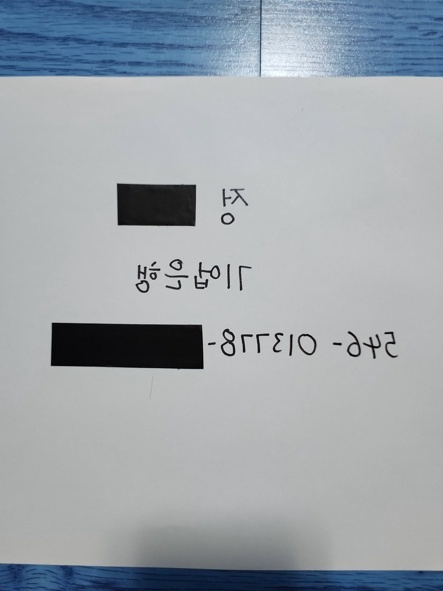 정
기업은행
546-013778-